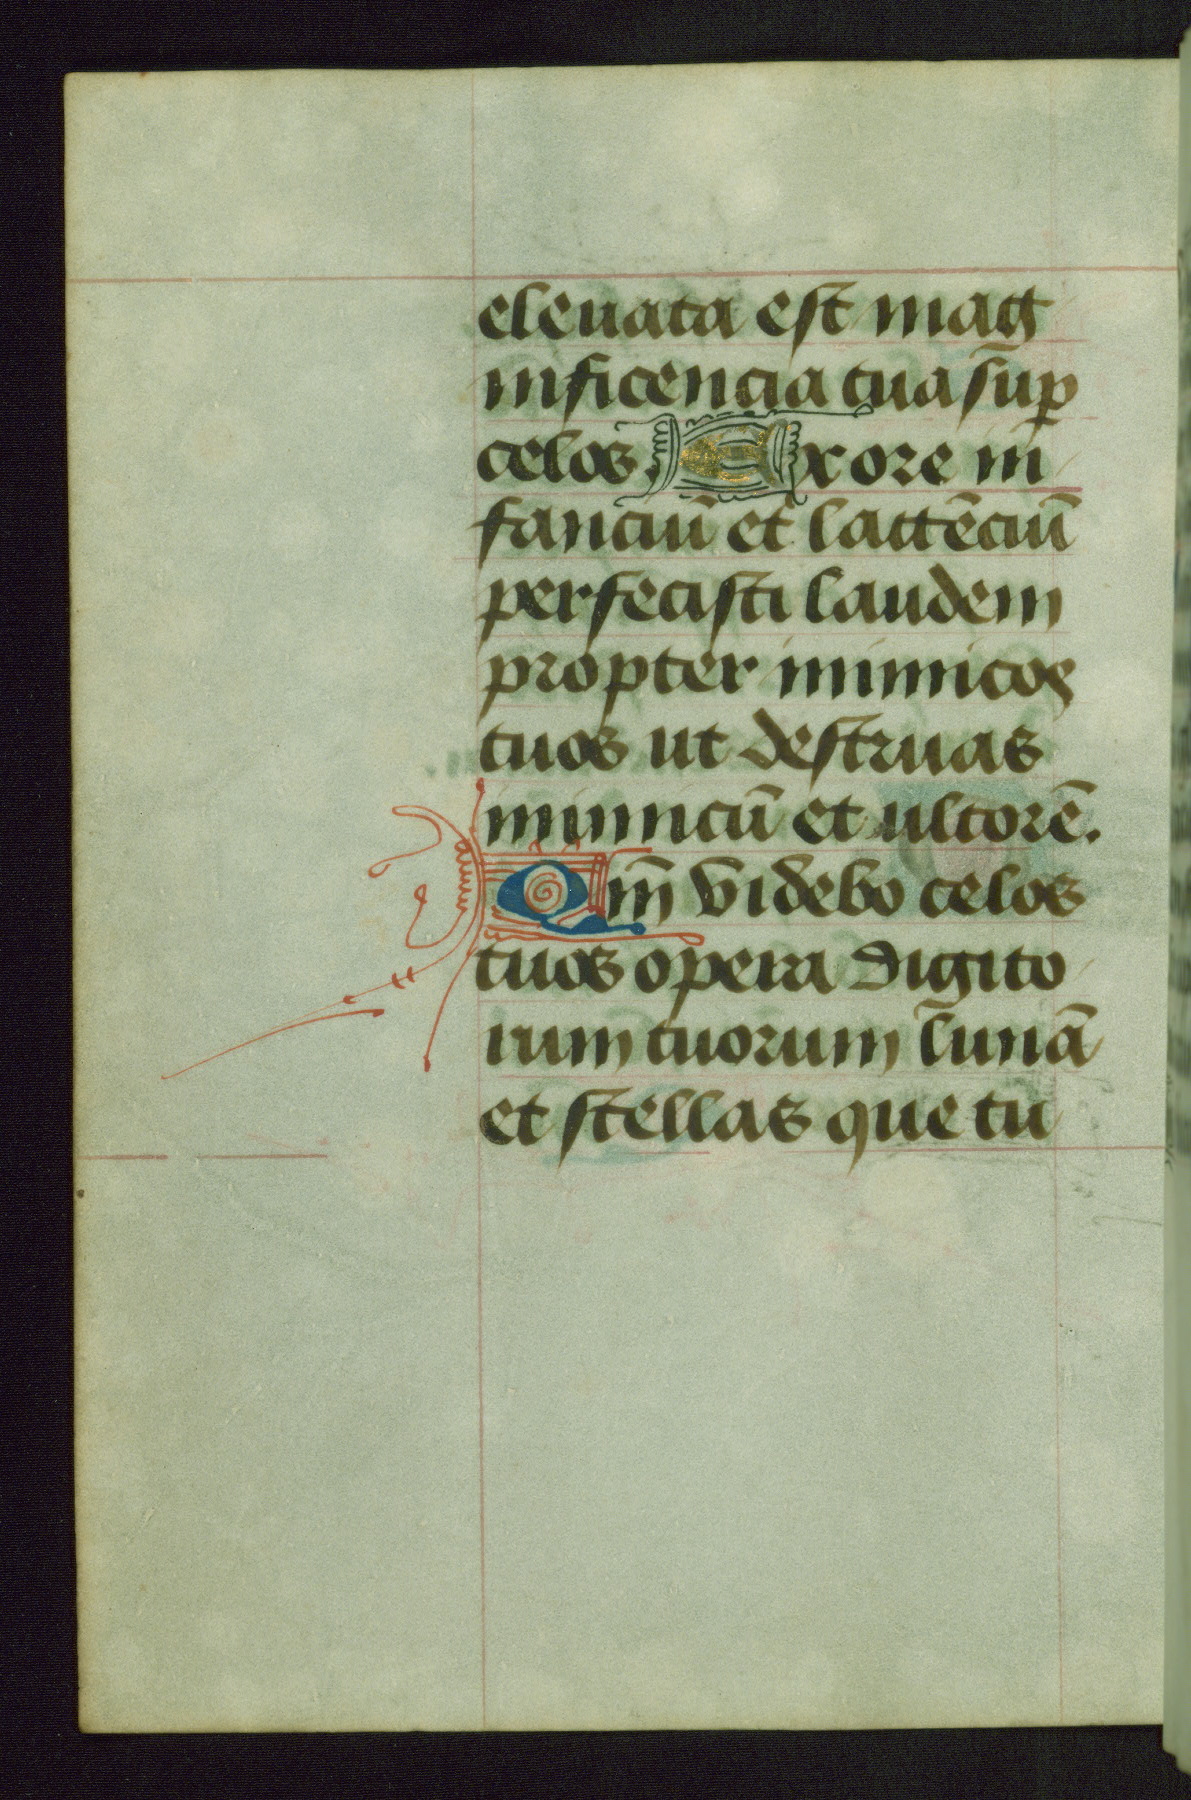 eleuata est mag
nificencia tua sup̱
celos Ex ore in
fanciū et lactēciū
perfecisti laudem
propter inimicos
tuos ut destruas
inimicū et ultorē.
Qm̄ videbo celos
tuos opera digito
rum tuorum lunā
et stellas que tu